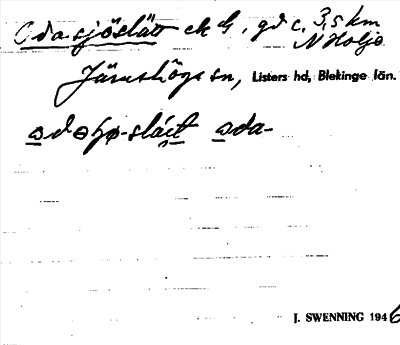 Odasjöslätt ek h, gd c. 3,5 km
N Holje
Jämshögs sn, Listers hd, Blekinge län.
ada-
J. SWENNING 1946